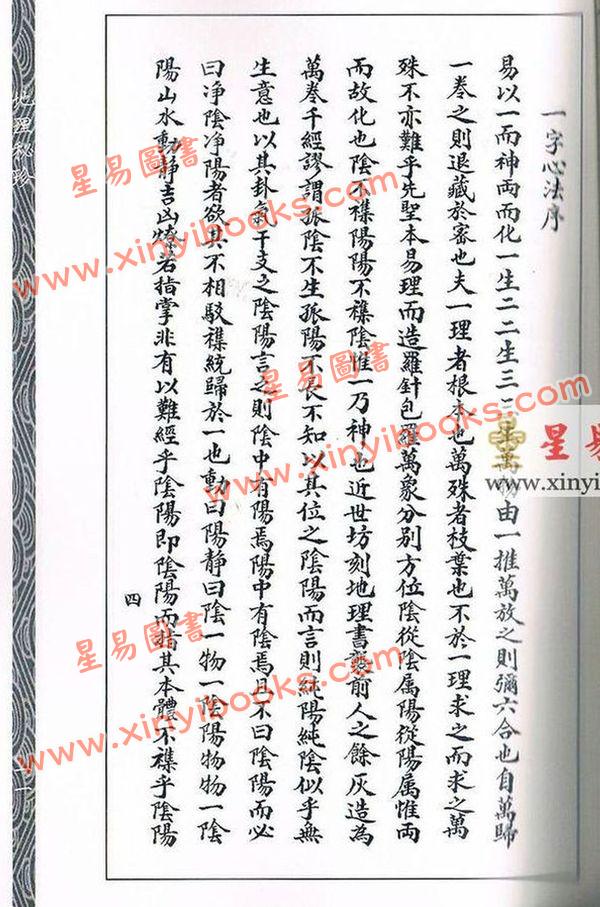 一字心法序
易以一而神両而化一生二二生三三生萬物由一推萬放之則彌六合也自萬歸
一卷之則退藏於密也夫一理者根本也萬殊者枝葉也不於一理求之而求之萬
殊不亦難乎先聖本易理而造羅針包羅萬象分別方位陰從陰属陽從陽属惟両
而故化也陰不襍陽陽不襍陰惟一乃神也近世坊刻地理書前人之餘灰造為
萬卷千經謬謂孤陰不生孤陽不長不知以其位之陰陽而言則純陽純陰似乎無
生意也以其卦氣干支之陰陽言之則陰中有陽焉陽中有陰焉且不曰陰陽而必
曰净陰净陽者欲其不相駁襍統歸於一也動曰陽静曰陰一物一陰陽物物一陰
陽山水動静吉凶燎若指掌非有以難經乎陰陽即陰陽而指其本體不襍乎陰陽
四
地理秘珍
星易圖書
www.xinyibooks.com
星易圖書
www.xinyibooks.com
星易圖書
www.xinyibooks.com
星易
www.xinyi